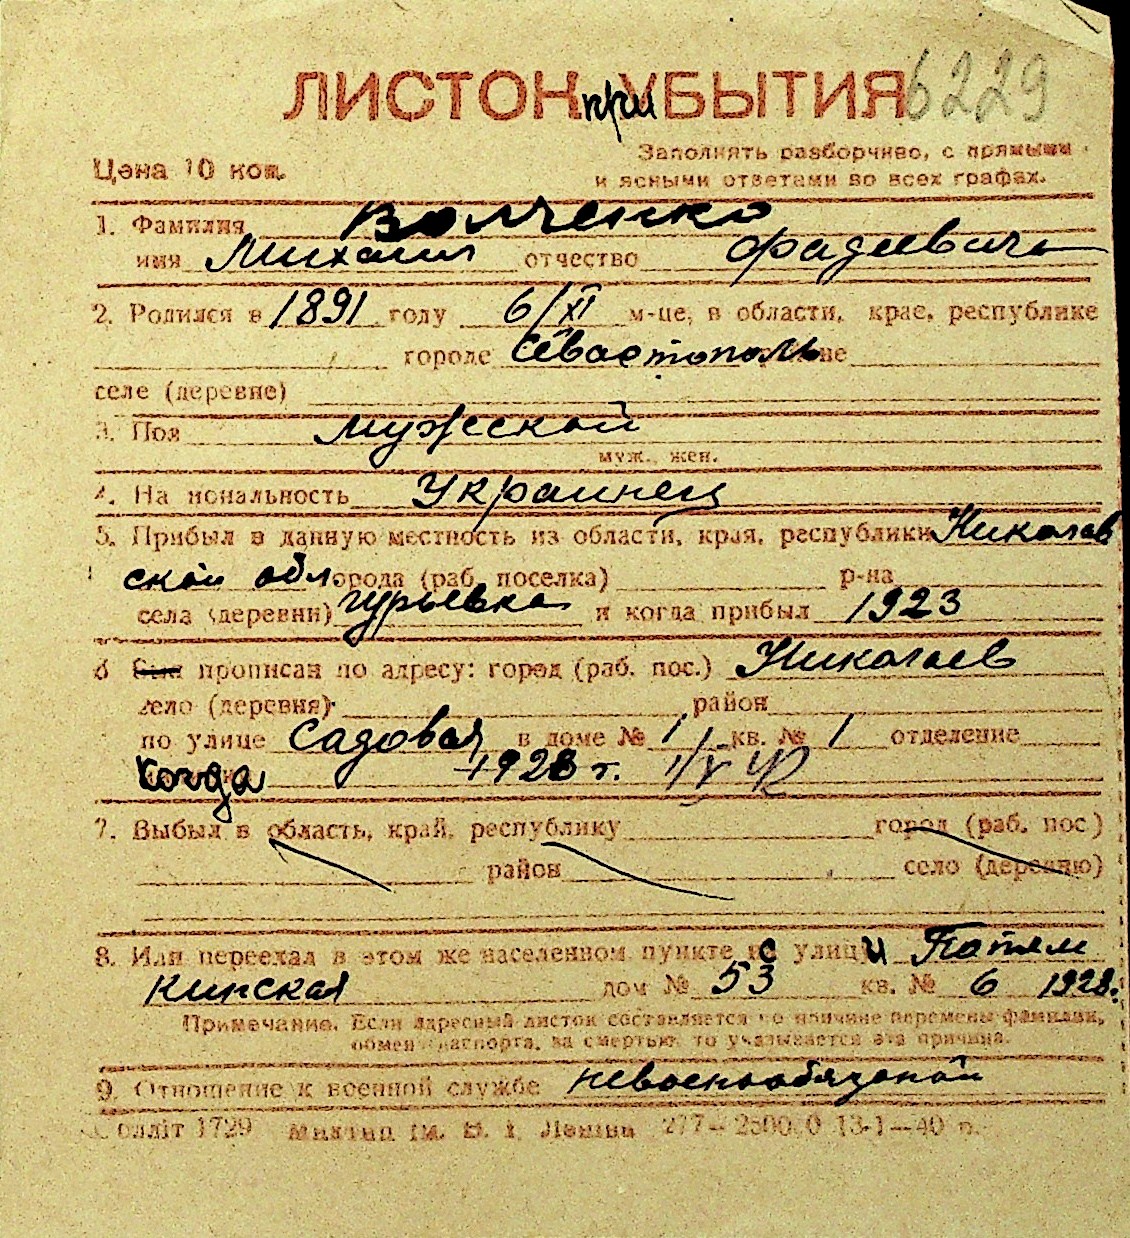 ЛИСТОК при УБЫТИЯ 6229
Цена 10 коп.
Заполнять разборчиво, с прямыми
и ясными ответами во всех графах.
1. Фамилия Волченко
имя Михаил отчество Фадеевичь
2. Родился в 1891 году 6/XI м-це, в области, крае, республике
городе Севастополь
селе (деревне)
3. Пол мужской
муж., жен.
4. Национальность Украинец
5. Прибыл в данную местность из области, края, республики Николаев
ской обл города (раб. поселка) р-на
села (деревни) гурьевка и когда прибыл 1923
6 Был прописан по адресу: город (раб. пос.) Николаев
село (деревня) район
по улице Садовая в доме № 1 кв. № 1 отделение
когда 1928 г. 1/V
7. Выбыл в область, край, республику город (раб. пос.)
район село (деревню)
8. Или переехал в этом же населенном пункте с улицы Потем
кинская дом № 53 кв. № 6 1928.
Примечание. Если адресный листок составляется по причине перемены фамилии,
обмен паспорта, за смертью, то указывается эта причина.
9. Отношение к военной службе невоенообязаной
1729 им. В. І. Леніна 277— 13-1—40 п.